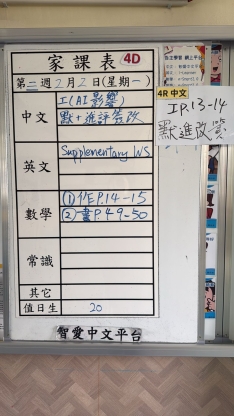 家課表 4D
第三週2月2日(星期一)
中文
I(AI影響)
默+進評簽改
英文
Supplementary WS
數學
(1)作P.14-15
(2)書P.49-50
常識
其它
值日生 20
智愛中文平台
4R 中文
I P.13-14
默進改簽